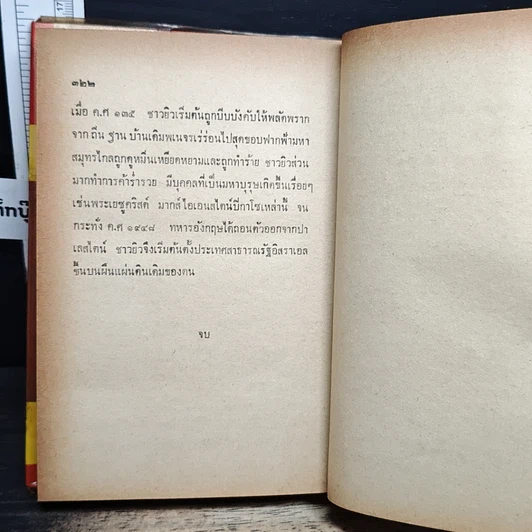 ๓๒๒
เมื่อ ค.ศ ๑๓๕ ชาวยิวเริ่มต้นถูกบีบบังคับให้พลัดพราก
จาก ถิ่น ฐาน บ้านเดิมพเนจรเร่ร่อนไปสุดขอบฟากฟ้ามหา
สมุทรไกลถูกดูหมิ่นเหยียดหยามและถูกทำร้าย ชาวยิวส่วน
มากทำการค้าร่ำรวย มีบุคคลที่เป็นมหาบุรุษเกิดขึ้นเรื่อยๆ
เช่นพระเยซูคริสต์ มากส์ไอเอนสไตน์ปีกาโซเหล่านี้ จน
กระทั่ง ค.ศ ๑๙๔๘ ทหารอังกฤษได้ถอนตัวออกจากปา
เลสไตน์ ชาวยิวจึงเริ่มต้นตั้งประเทศสาธารณรัฐอิสราเอล
ขึ้นบนผืนแผ่นดินเดิมของตน
จบ